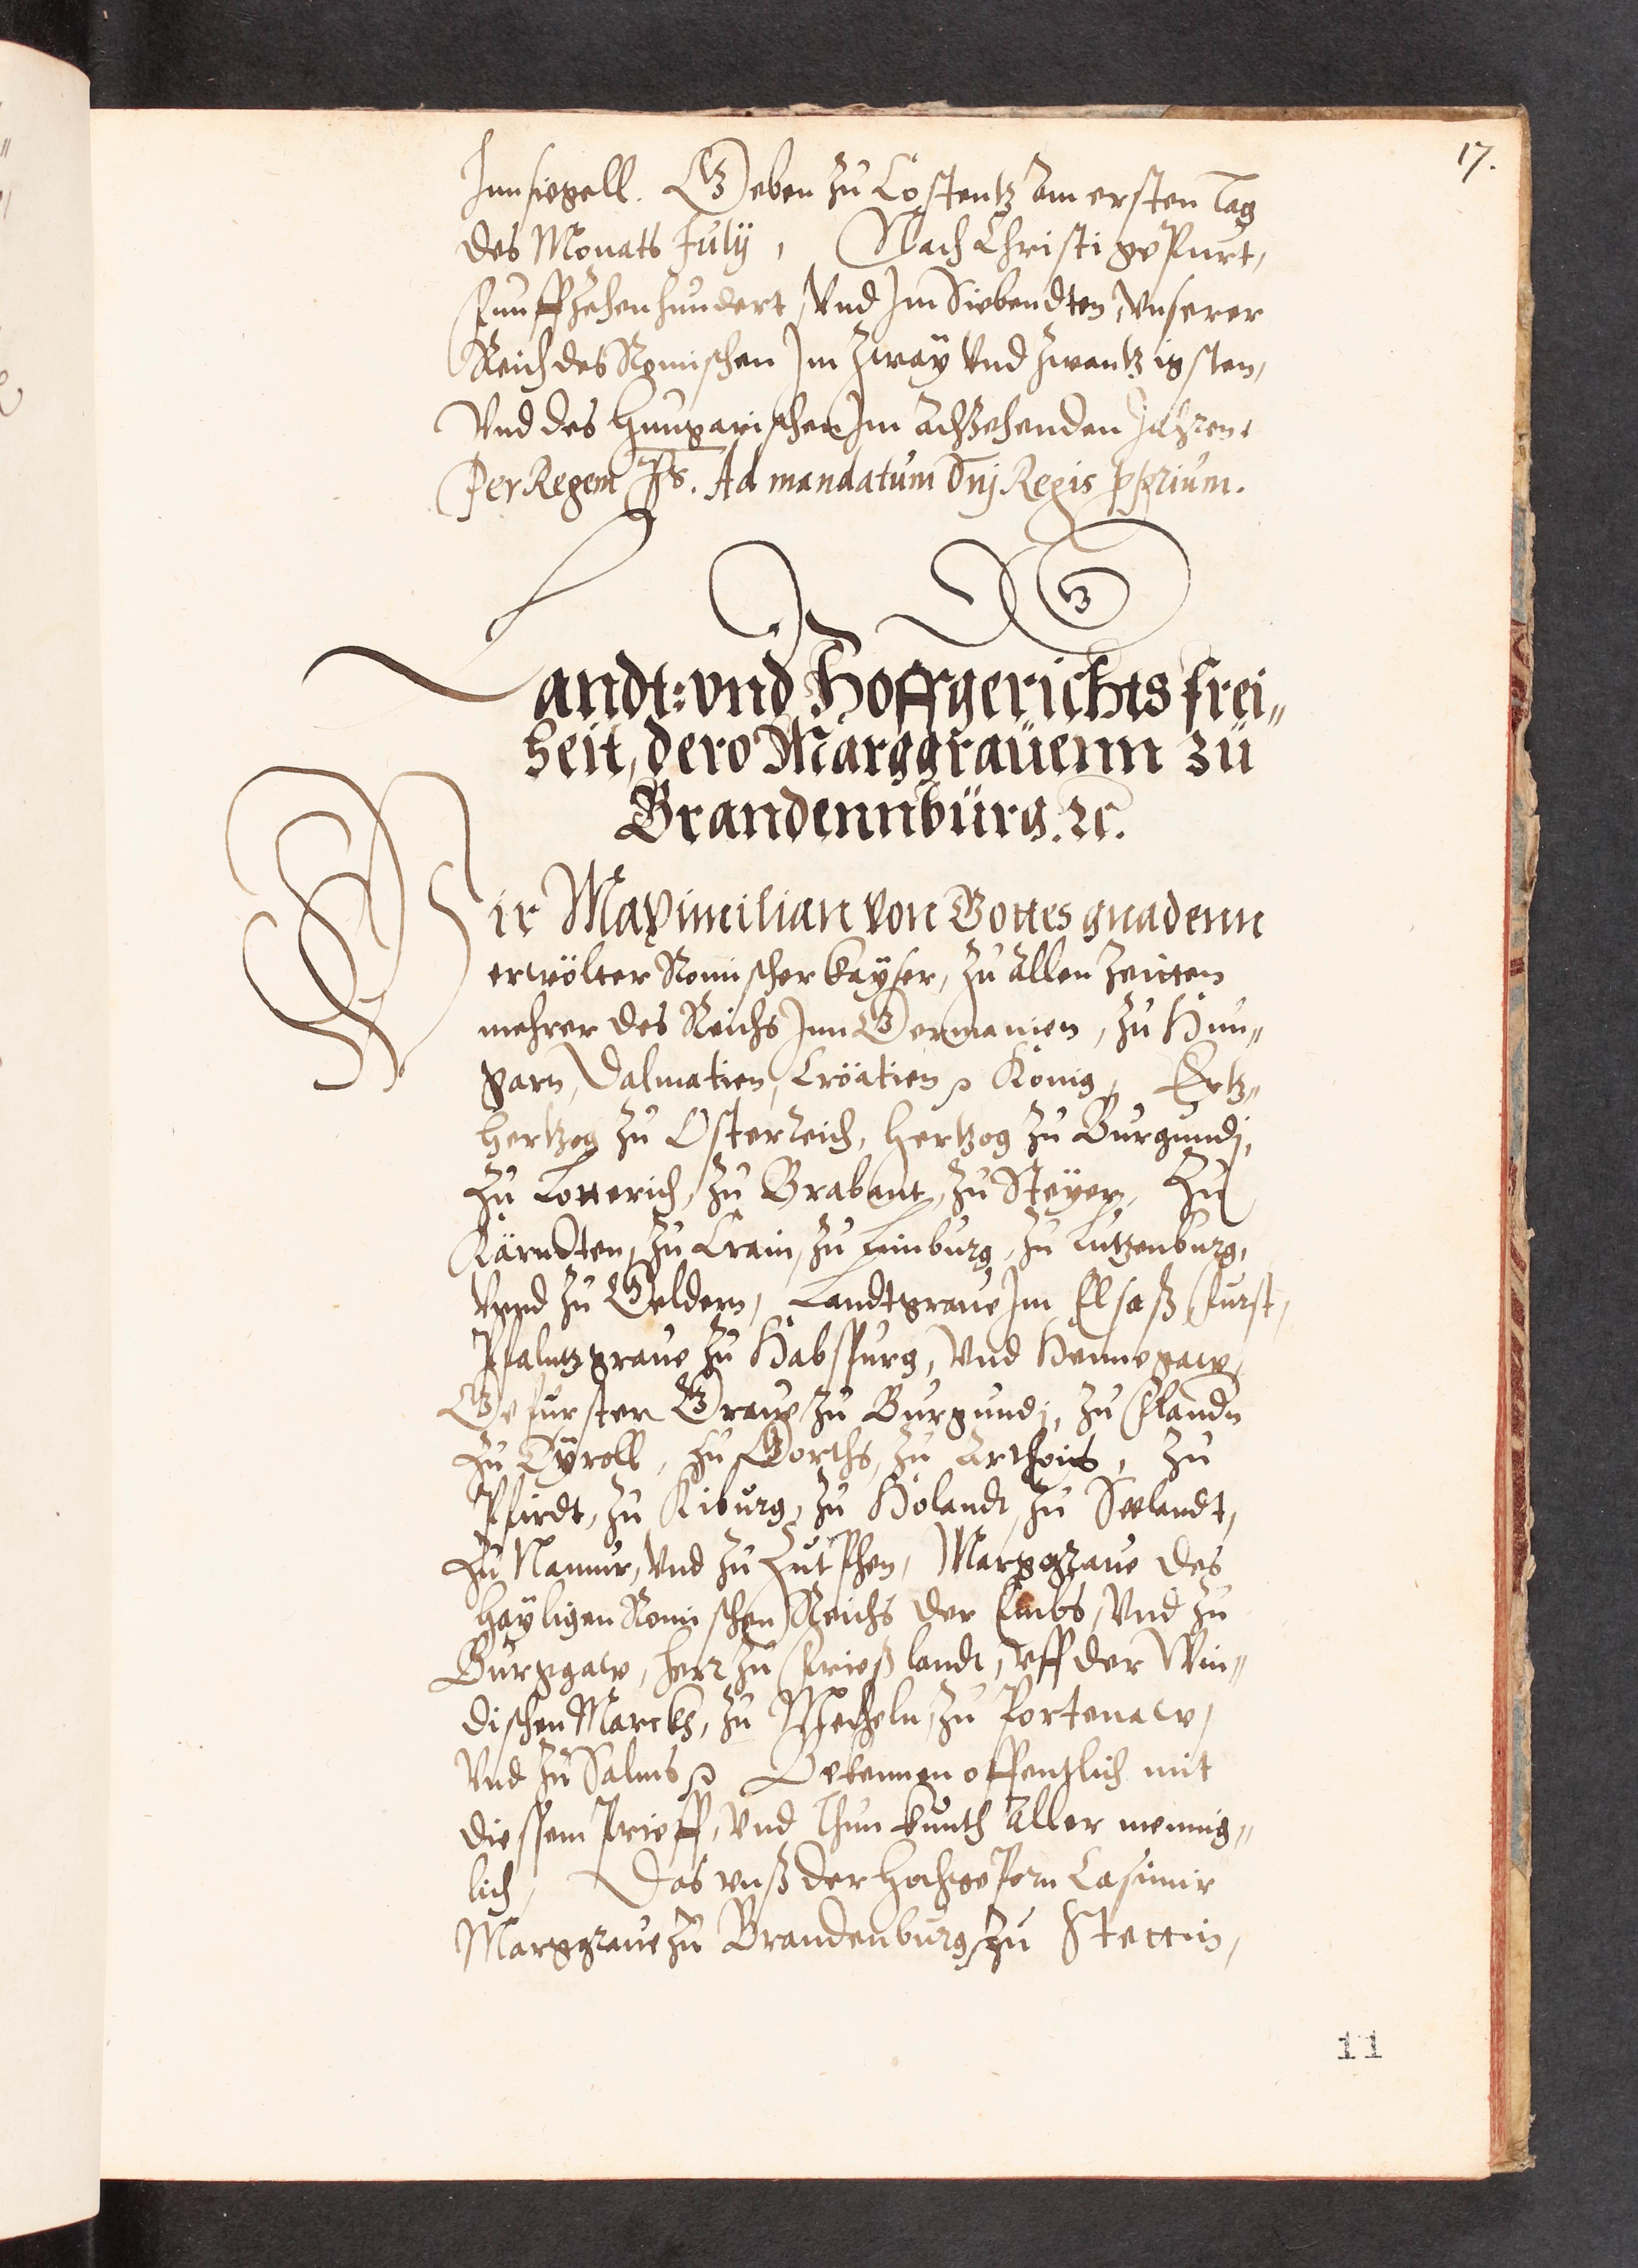 17.
Innsiegell. Geben zu Costentz am ersten Tag
des Monats July, Nach Christi gepurt,
Funffzehenhundert, Vnd Im Siebendten, Vnserer
Reich des Romischen Im Zway Vnd Zwantzigsten,
Vnd des Hungarischen Im Achzehenden Jahren.
Per Regem Ps. Ad mandatum Dnj Regis pprium.
Landt: vnd Hoffgerichts frei„
heit, dero Marggrauenn zu
Brandennburg. ꝛc.
Wir Maximilian von Gottes gnadenn
erwölter Romischer Kayser, zu allen Zeitten
mehrer des Reichs Inn Germanien, zu Hun„
garn, Dalmatien, Croatien ꝛc König, Ertz„
hertzog zu Osterreich, Hertzog zu Burgundj,
zu Lotterich, zu Brabant, zu Steyer, Zu
Kärndten, zu Crain, zu Limburg, zu Lutzenburg,
Vnnd zu Geldern, Landtgraue Im Elsaß Furst,
Pfaltzgraue zu Habspurg, Vnd Hennegaw,
Gefurster Graue zu Burgundj, zu Flandn
zu Tyroll, zu Gorths, zu Arthois, zu
Pfirdt, zu Kiburg, zu Holandt, zu Seelandt,
zu Namur, Vnd zu Zutphen, Marggraue des
Hayligen Romischen Reichs der Embs, Vnd zu
Burggaw, Herr zu Frießlandt, vff der Win„
dischen Marckh, zu Mecheln, zu Portenaw,
Vnd zu Salms ꝛc Bekennen offentlich mit
diessem Prieff, Vnd Thun kunth Aller mennig„
lich, Das vnß der Hochgeporn Casimir
Marggraue zu Brandenburg, zu Stettin,
11